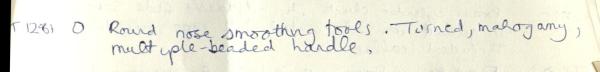 T 1281 O Round nose smoothing tools. Turned, mahogany,
multiple-beaded handle.